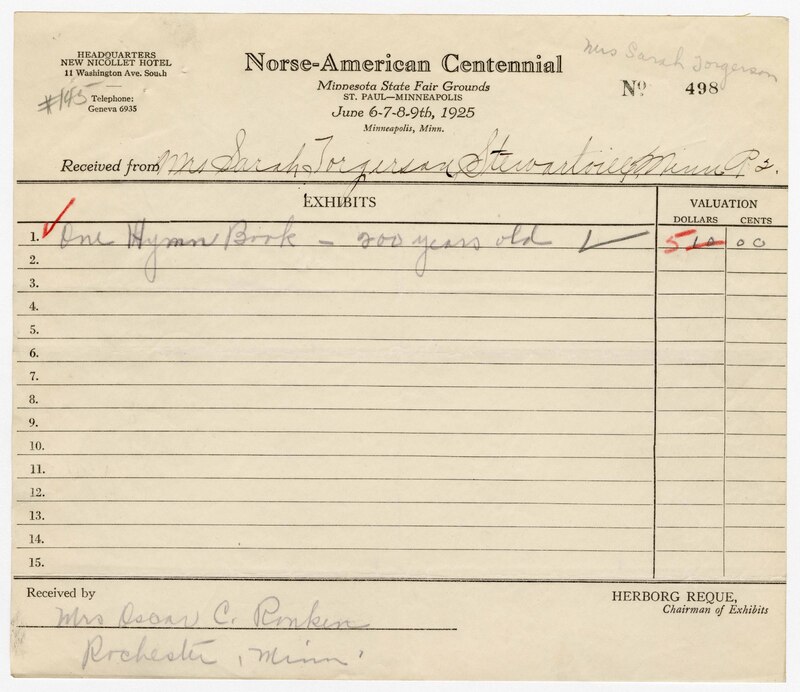 HEADQUARTERS
NEW NICOLLET HOTEL
11 Washington Ave. South
#145
Telephone:
Geneva 6935
Norse-American Centennial
Minnesota State Fair Grounds
ST. PAUL—MINNEAPOLIS
June 6-7-8-9th, 1925
Minneapolis, Minn.
Mrs Sarah Torgerson
No 498
Received from Mrs Sarah Torgerson, Stewartville, Minn R 2.
EXHIBITS
VALUATION
DOLLARS CENTS
1. One Hymn Book - 200 years old 5 10 00
2.
3.
4.
5.
6.
7.
8.
9.
10.
11.
12.
13.
14.
15.
Received by
Mrs Oscar C. Ronken
Rochester, Minn.
HERBORG REQUE,
Chairman of Exhibits